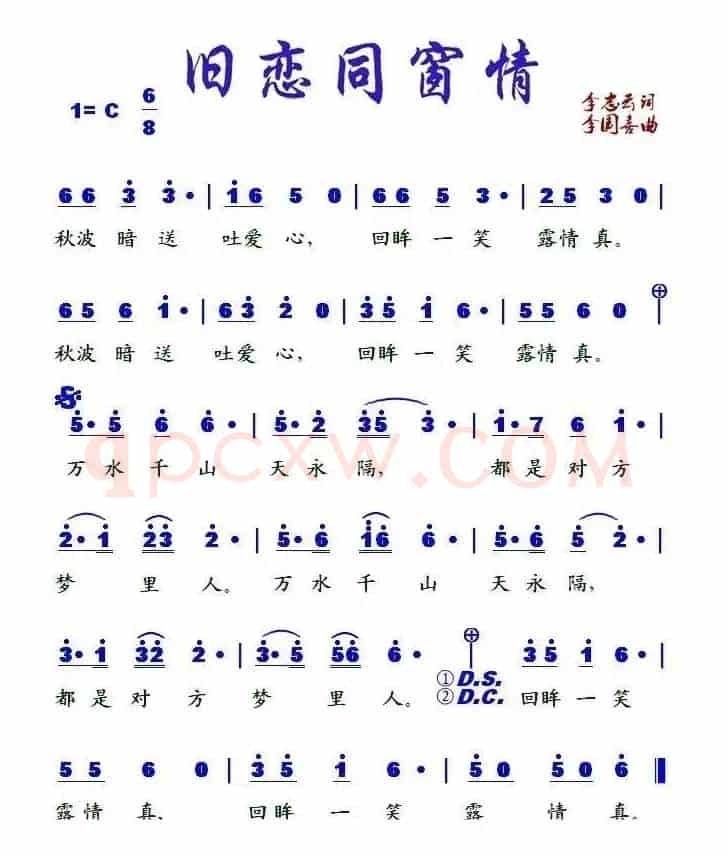 旧恋同窗情
1= C 6/8
李志云词
李国喜曲
6 6 3̇ 3̇· | 1̇ 6 5 0 | 6 6 5 3· | 2 5 3 0 |
秋波暗送 吐爱心, 回眸一笑 露情真。
6 5 6 1̇· | 6 3̇ 2̇ 0 | 3̇ 5̇ 1̇ 6· | 5 5 6 0 |
秋波暗送 吐爱心, 回眸一笑 露情真。
5̇· 5̇ 6̇ 6̇· | 5̇· 2̇ 3̇5̇ 3̇· | 1̇· 7 6̇ 1̇· |
万水千山 天永隔, 都是对方
qpcxw.com
2̇· 1̇ 2̇3̇ 2̇· | 5̇· 6̇ 1̇6̇ 6̇· | 5̇· 6̇ 5̇ 2̇· |
梦里人。 万水千山 天永隔,
3̇· 1̇ 3̇2̇ 2̇· | 3̇· 5̇ 5̇6̇ 6̇· | 3̇ 5̇ 1̇ 6· |
都是对方 梦里人。 ①D.S. ②D.C. 回眸一笑
5 5 6 0 | 3̇ 5̇ 1̇ 6· | 5̇ 0 5̇ 0 6̇
露情真, 回眸一笑 露情真。